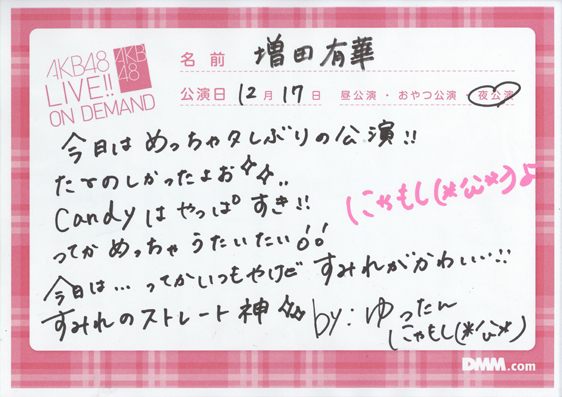 AKB48
LIVE!!
ON DEMAND
AKB
48
名前 増田有華
公演日 12月17日 昼公演・おやつ公演・夜公演
今日はめっちゃ久しぶりの公演!!
たのしかったよお☆☆..
Candyはやっぱすき!!
ってか めっちゃ うたいたい!!
にゃもし(*'ω'*)♪
今日は… ってかいつもやけど すみれがかわいい…!!
すみれのストレート神☆☆
by:ゆったん
にゃもし(*'ω'*)
DMM.com